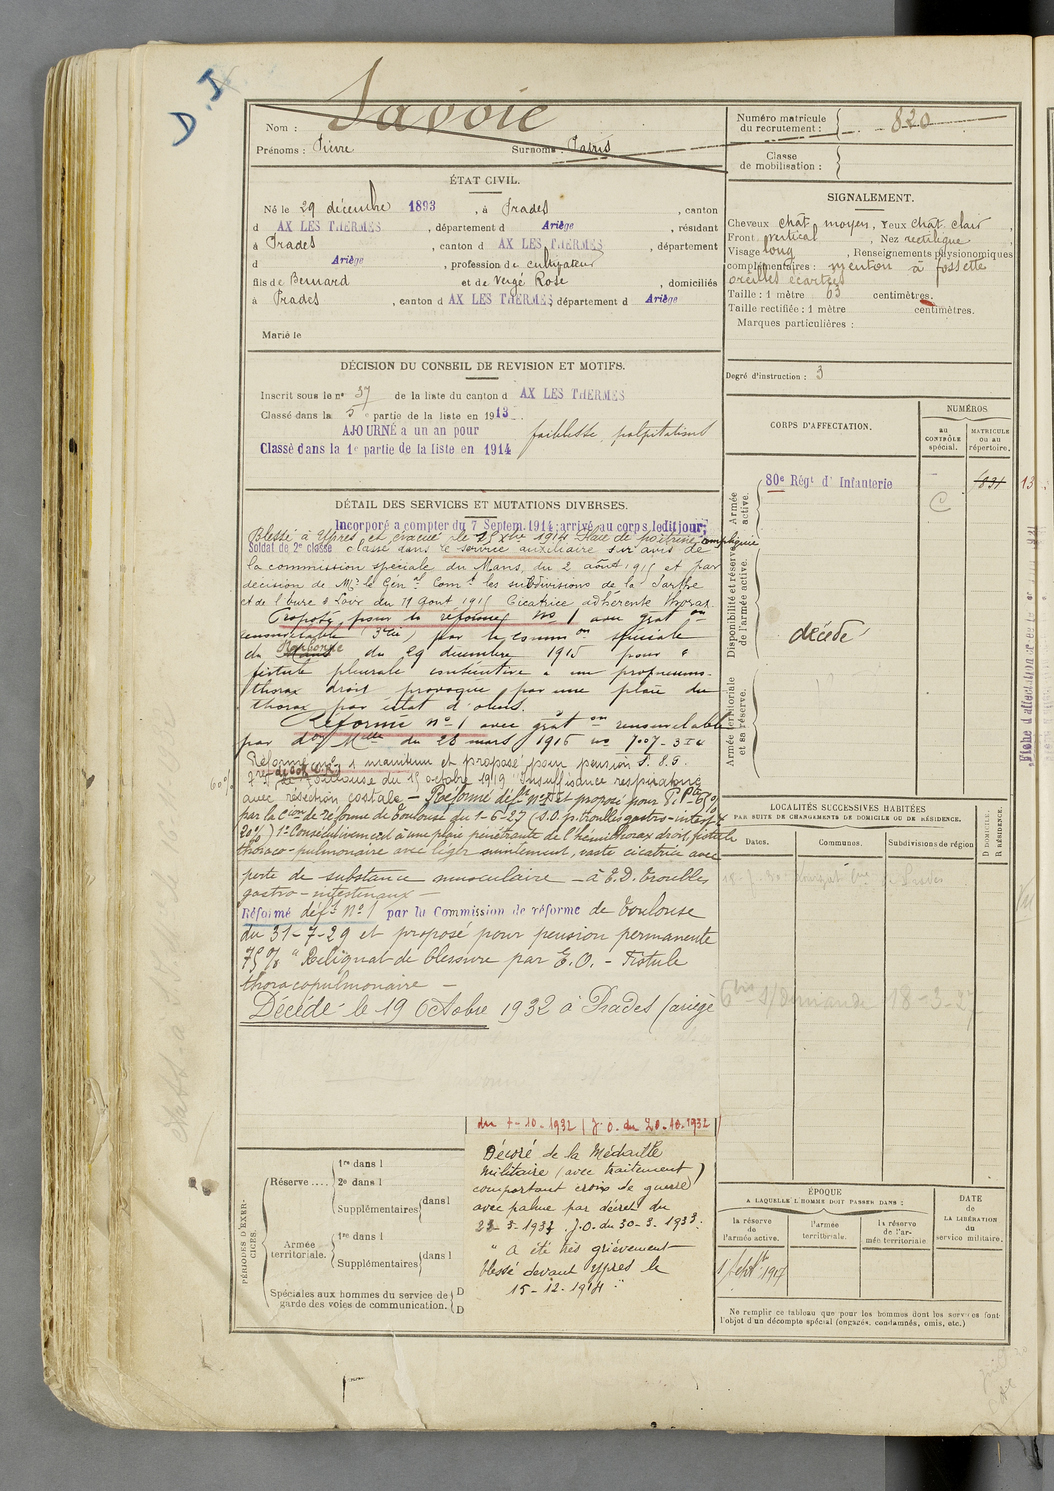 D.I
Savoie
Nom :
Prénoms : Pierre Surnoms Patris
Numéro matricule du recrutement : 820
Classe de mobilisation :
ÉTAT CIVIL.
Né le 29 décembre 1893, à Prades, canton
d AX LES THERMES, département d Ariège, résidant
à Prades, canton d AX LES THERMES, département
d Ariège, profession de cultivateur
fils de Bernard et de Vergé Rose, domiciliés
à Prades, canton d AX LES THERMES, département d Ariège
Marié le
SIGNALEMENT.
Cheveux chât. moyen, Yeux chât. clair,
Front vertical, Nez rectiligne
Visage long, Renseignements physionomiques
complémentaires : menton à fossette
oreilles écartées
Taille : 1 mètre 63 centimètres.
Taille rectifiée : 1 mètre centimètres.
Marques particulières :
Degré d'instruction : 3
DÉCISION DU CONSEIL DE REVISION ET MOTIFS.
Inscrit sous le n° 37 de la liste du canton d AX LES THERMES
Classé dans la 5e partie de la liste en 1913.
AJOURNÉ a un an pour faiblesse, palpitations
Classé dans la 1e partie de la liste en 1914
DÉTAIL DES SERVICES ET MUTATIONS DIVERSES.
Incorporé a compter du 7 Septem. 1914; arrivé au corps ledit jour;
Blessé à Ypres et évacué le 15 Xbre 1914 Plaie de poitrine compliquée
Soldat de 2e classe classé dans le service auxiliaire sur avis de
la commission spéciale du Mans, du 2 août 1915 et par
décision de Mr le Génal Comt les subdivisions de la Sarthe
et de l'Eure & Loir du 11 Août 1915 Cicatrice adhérente thorax.
Proposé pour la réforme no 1 avec gration
renouvelable (3e cie) par la common spéciale
de Narbonne du 29 décembre 1915 pour "
fistule pleurale consécutive à un pyopneumo-
thorax droit provoqué par une plaie du
thorax par éclat d'obus.
Réformé no 1 avec gration renouvelable
par Don Mlle du 28 mars 1916 no 7007-3 I 4
Réformé no 1 maintenu et proposé pour pension P. 86
Toulouse du 15 octobre 1919 Insuffisance respiratoire
60%
avec résection costale - Réformé défft no 1 et proposé pour P. Pte 65%
par la Ción de réforme de Toulouse du 1-6-27 (S.O. p. troubles gastro-intestx
20%) 1° Consécutivement à une plaie pénétrante de l'hémithorax droit, fistule
thoraco-pulmonaire avec léger suintement, vaste cicatrice avec
perte de substance musculaire - à E.D. troubles
gastro-intestinaux -
Réformé déft N° 1 par la Commission de réforme de Toulouse
du 31-7-29 et proposé pour pension permanente
75% " Reliquat de blessure par E.O. - Fistule
thoracopulmonaire -
Décédé le 19 Octobre 1932 à Prades (ariège
CORPS D'AFFECTATION.
NUMÉROS
au CONTRÔLE spécial.
MATRICULE ou au répertoire.
Armée active.
80e Régt d' Infanterie
831
13
C
Disponibilité et réserve de l'armée active.
décédé
Armée territoriale et sa réserve.
LOCALITÉS SUCCESSIVES HABITÉES
PAR SUITE DE CHANGEMENTS DE DOMICILE OU DE RÉSIDENCE.
Dates.
Communes.
Subdivisions de région
D DOMICILE.
R RÉSIDENCE.
6 bis s/ demande 18-3-27
du 7-10-1932 J.O. du 20-10-1932
Décoré de la Médaille
militaire (avec traitement)
comportant croix de guerre
avec palme par décret du
23-3-1933 J.O. du 30-3-1933.
" A été très grièvement
blessé devant Ypres le
15-12-1914 "
PÉRIODES D'EXERCICES.
Réserve....
1re dans l
2e dans l
Supplémentaires dans l
Armée territoriale.
1re dans l
Supplémentaires dans l
Spéciales aux hommes du service de garde des voies de communication.
D
D
ÉPOQUE
A LAQUELLE L'HOMME DOIT PASSER DANS :
la réserve de l'armée active.
l'armée territoriale.
la réserve de l'armée territoriale.
DATE de LA LIBÉRATION du service militaire.
1 Septbre 1917
Ne remplir ce tableau que pour les hommes dont les services font
l'objet d'un décompte spécial (engagés, condamnés, omis, etc.)